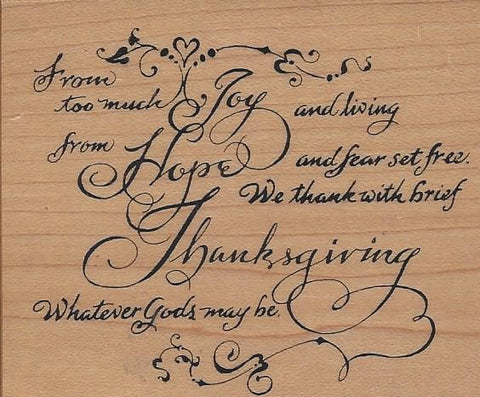 From
too much Joy and living
from Hope and fear set free.
We thank with brief
Thanksgiving
Whatever Gods may be.